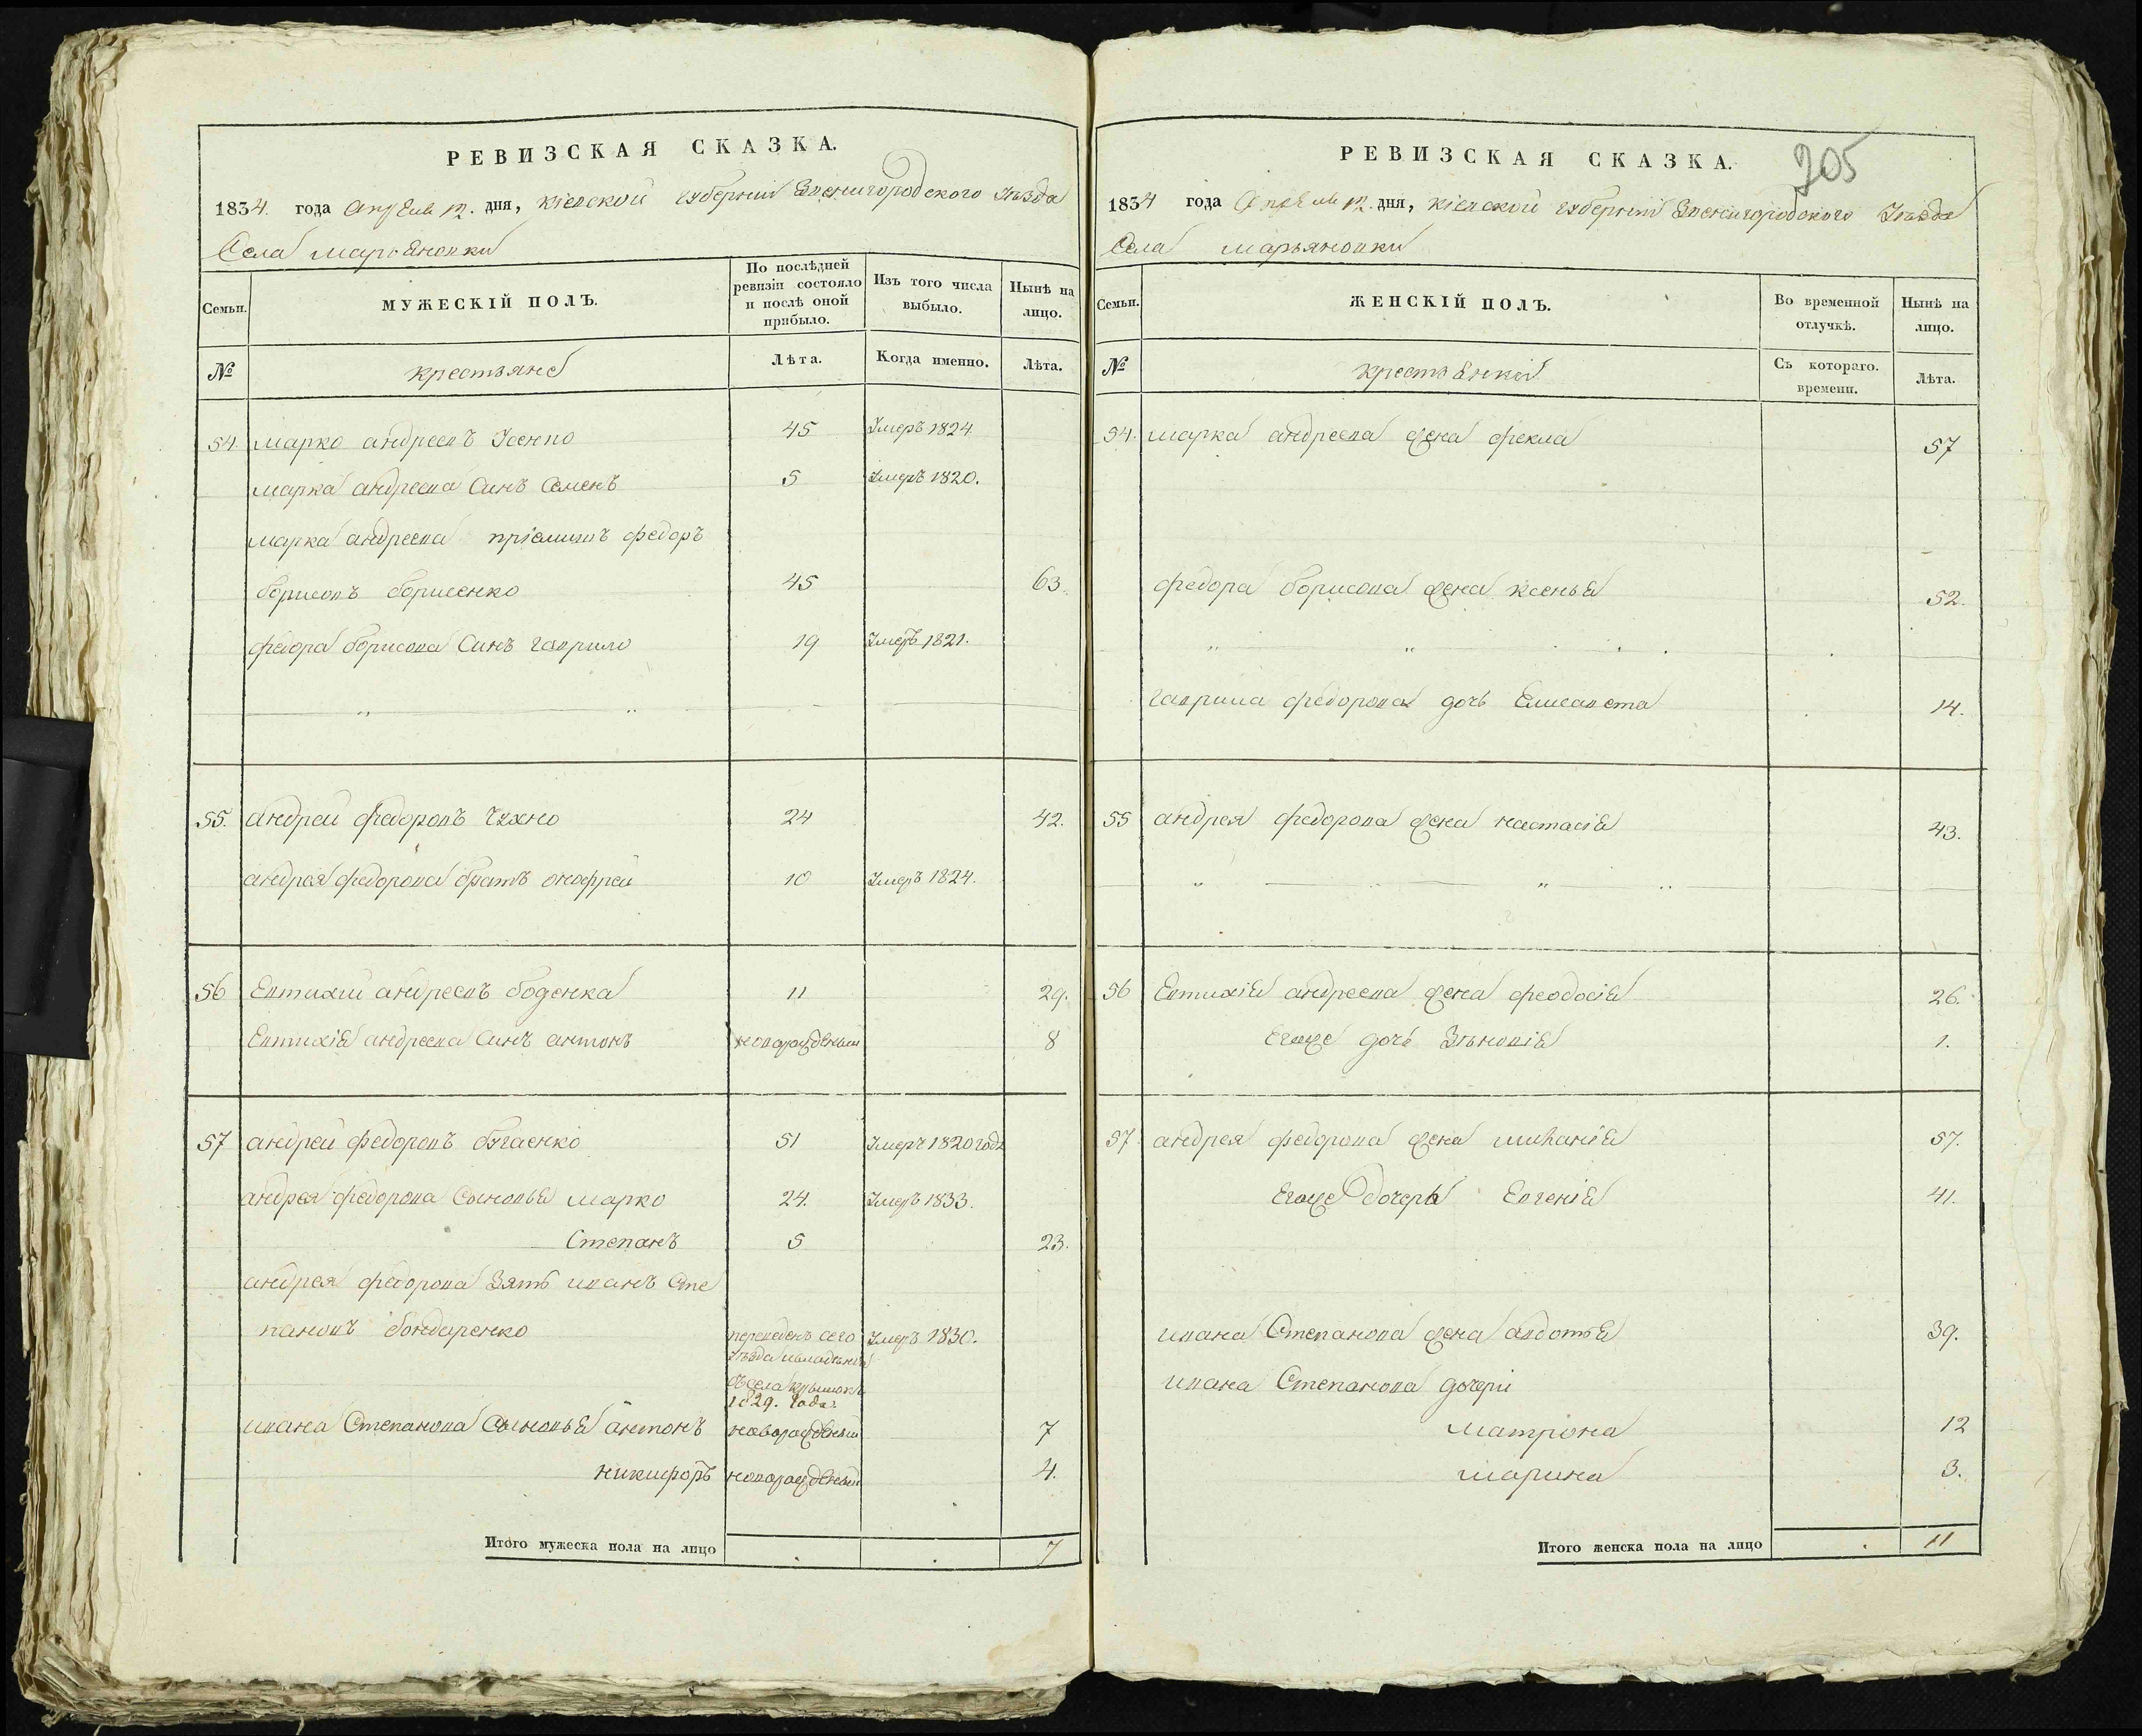 РЕВИЗСКАЯ СКАЗКА.
1834. года Апреля 12. дня, Кіевской губерніи Звенигородского Уѣзда
Села Марьяновки
Семьи.
МУЖЕСКІЙ ПОЛЪ.
По послѣдней ревизіи состояло и послѣ оной прибыло.
Изъ того числа выбыло.
Нынѣ на лицо.
№
крестьяне
Лѣта.
Когда именно.
Лѣта.
54. Марко андреевъ 45 Умеръ 1824
Марка андреева Синъ Семенъ 5 Умеръ 1820.
Марка андреева федоръ
борисовъ борисенко 45 63.
федора борисова Синъ гаврило 19 Умеръ 1821.
55. андрей федоровъ Чухно 24 42.
андрея федорова братъ онофрей 10 Умеръ 1824.
56 Евтихий андреевъ боденка 11 29.
Евтихія андреева Синъ антонъ новорожденый 8
57 андрей федоровъ бугаенко 51 Умеръ 1820 года
андрея федорова Сыновья марко 24. Умеръ 1833.
Степанъ 5 23.
андрея федорова Зять иванъ Сте
пановъ бондаренко переведенъ сего Умеръ 1830.
Уѣзда
села
1829. года.
ивана Степанова Сыновья антонъ новорожденый 7
никифоръ новорожденый 4.
Итого мужеска пола на лицо 7
РЕВИЗСКАЯ СКАЗКА.
205
1834 года Апреля 12. дня, Кіевской губерніи Звенигородского Уѣзда
Села Марьяновки
Семьи.
ЖЕНСКІЙ ПОЛЪ.
Во временной отлучкѣ.
Нынѣ на лицо.
№
крестьянки
Съ котораго. времени.
Лѣта.
54. Марка андреева жена фекла 57
федора борисова жена ксенья 52.
гаврила федорова дочь Елисавета 14.
55 андрея федорова жена настасія 43.
56 Евтихія андреева жена феодосія 26.
Егоже дочь Зѣновія 1.
57. андрея федорова жена 57.
Егоже дочерь Евгенія 41.
ивана Степанова жена авдотья 39.
ивана Степанова дочери
матрона 12
марина 3.
Итого женска пола на лицо 11